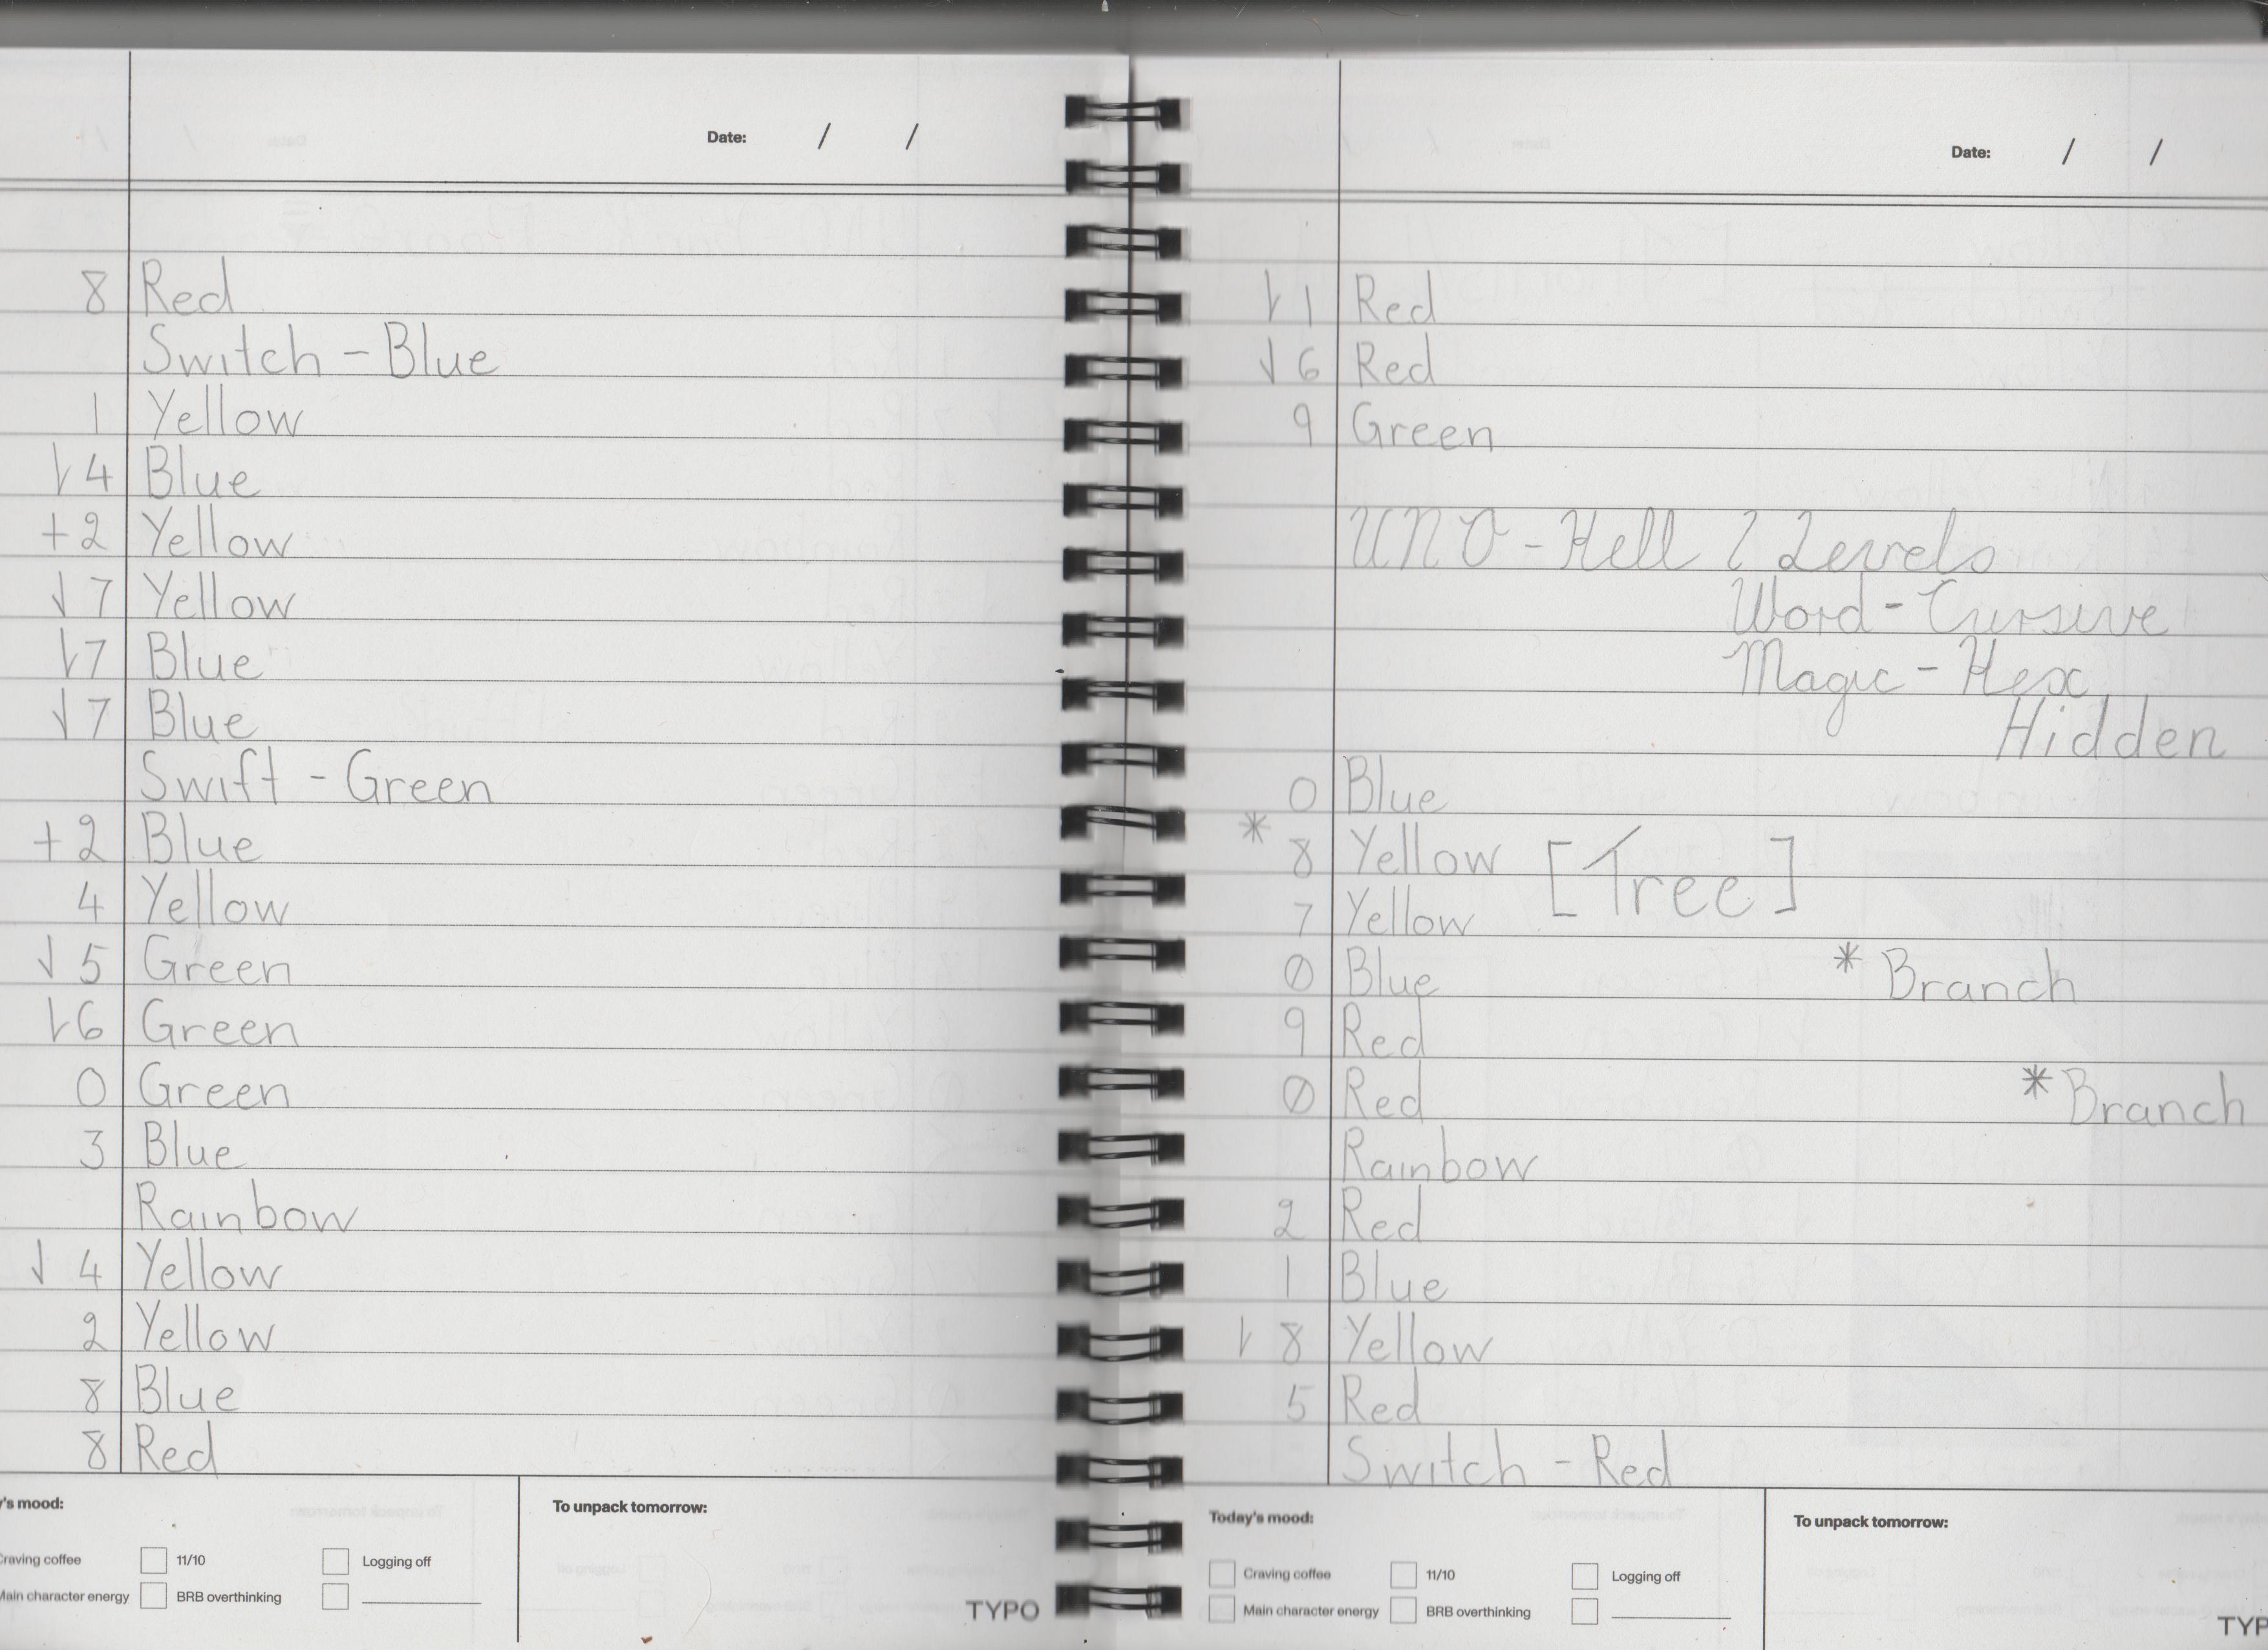 Date: / /
8 Red
Switch - Blue
1 Yellow
↾4 Blue
+2 Yellow
⇃7 Yellow
↾7 Blue
⇃7 Blue
Swift - Green
+2 Blue
4 Yellow
⇃5 Green
↾6 Green
0 Green
3 Blue
Rainbow
⇃4 Yellow
2 Yellow
8 Blue
8 Red
's mood:
Craving coffee
11/10
Logging off
Main character energy
BRB overthinking
To unpack tomorrow:
TYPO
Date: / /
↾1 Red
⇃6 Red
9 Green
UNO - Hell Levels
Word - Cursive
Magic - Hex
Hidden
0 Blue
* 8 Yellow [Tree]
7 Yellow
Ø Blue * Branch
9 Red
Ø Red * Branch
Rainbow
2 Red
1 Blue
↾8 Yellow
5 Red
Switch - Red
Today's mood:
Craving coffee
11/10
Logging off
Main character energy
BRB overthinking
To unpack tomorrow:
TYP